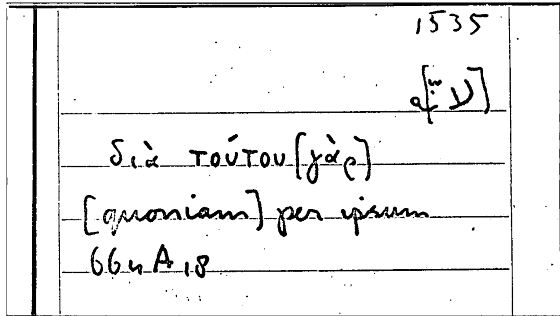 1535
διὰ τούτου [γὰρ]
[quoniam] per ipsum
664 A 18